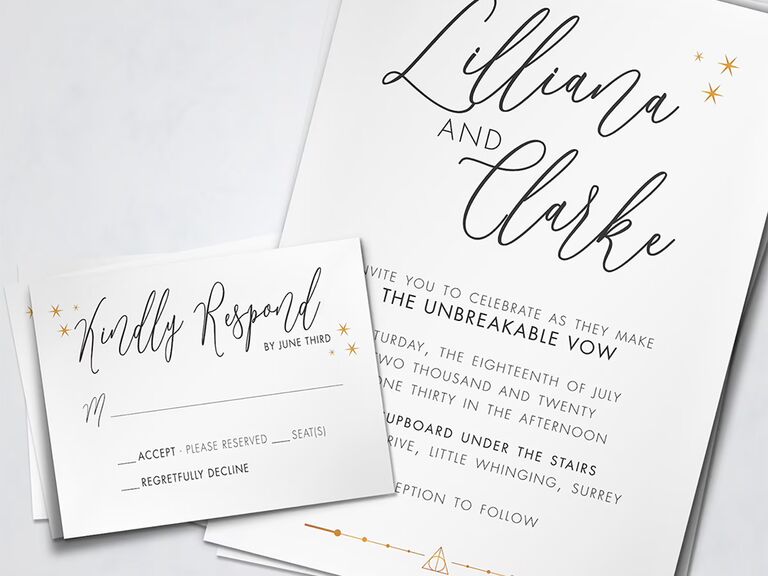 Lilliana
AND
Clarke
NVITE YOU TO CELEBRATE AS THEY MAKE
THE UNBREAKABLE VOW
TURDAY, THE EIGHTEENTH OF JULY
TWO THOUSAND AND TWENTY
ONE THIRTY IN THE AFTERNOON
CUPBOARD UNDER THE STAIRS
RIVE, LITTLE WHINGING, SURREY
EPTION TO FOLLOW
Kindly Respond
BY JUNE THIRD
M
ACCEPT · PLEASE RESERVED ___ SEAT(S)
REGRETFULLY DECLINE